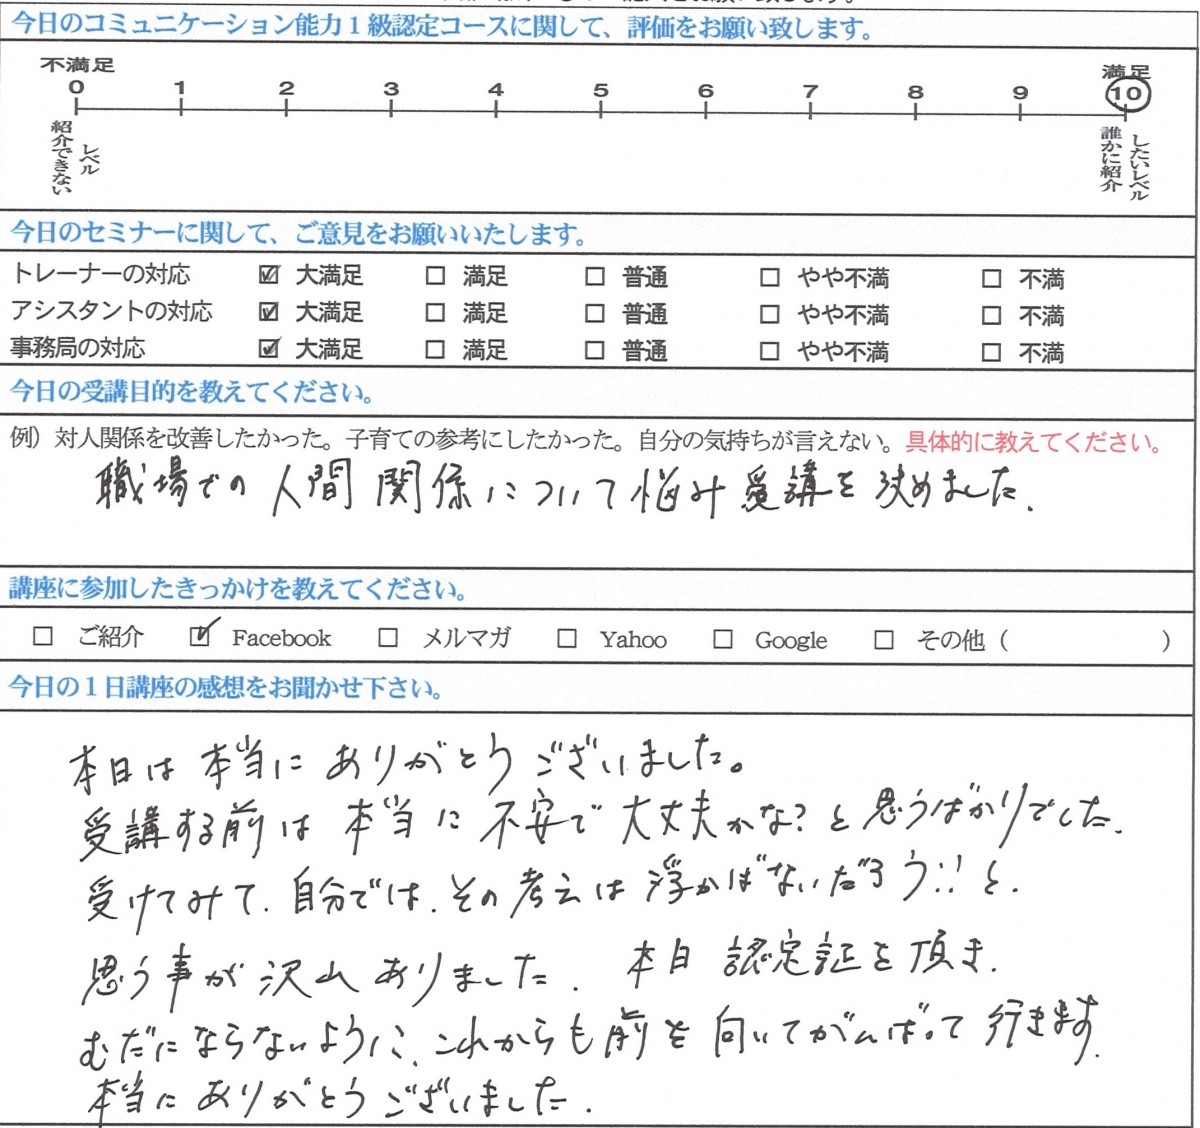 今日のコミュニケーション能力1級認定コースに関して、評価をお願い致します。
不満足 満足
0 1 2 3 4 5 6 7 8 9 10
紹介できないレベル 誰かに紹介したいレベル
今日のセミナーに関して、ご意見をお願いいたします。
トレーナーの対応 ☑ 大満足 □ 満足 □ 普通 □ やや不満 □ 不満
アシスタントの対応 ☑ 大満足 □ 満足 □ 普通 □ やや不満 □ 不満
事務局の対応 ☑ 大満足 □ 満足 □ 普通 □ やや不満 □ 不満
今日の受講目的を教えてください。
例）対人関係を改善したかった。子育ての参考にしたかった。自分の気持ちが言えない。具体的に教えてください。
職場での人間関係について悩み受講を決めました.
講座に参加したきっかけを教えてください。
□ ご紹介 ☑ Facebook □ メルマガ □ Yahoo □ Google □ その他（ ）
今日の1日講座の感想をお聞かせ下さい。
本日は本当にありがとうございました。
受講する前は本当に不安で大丈夫かな?と思うばかりでした.
受けてみて.自分では.その考えは浮かばないだろう!!と.
思う事が沢山ありました. 本日認定証を頂き.
むだにならないように、これからも前を向いてがんばって行きます.
本当にありがとうございました.